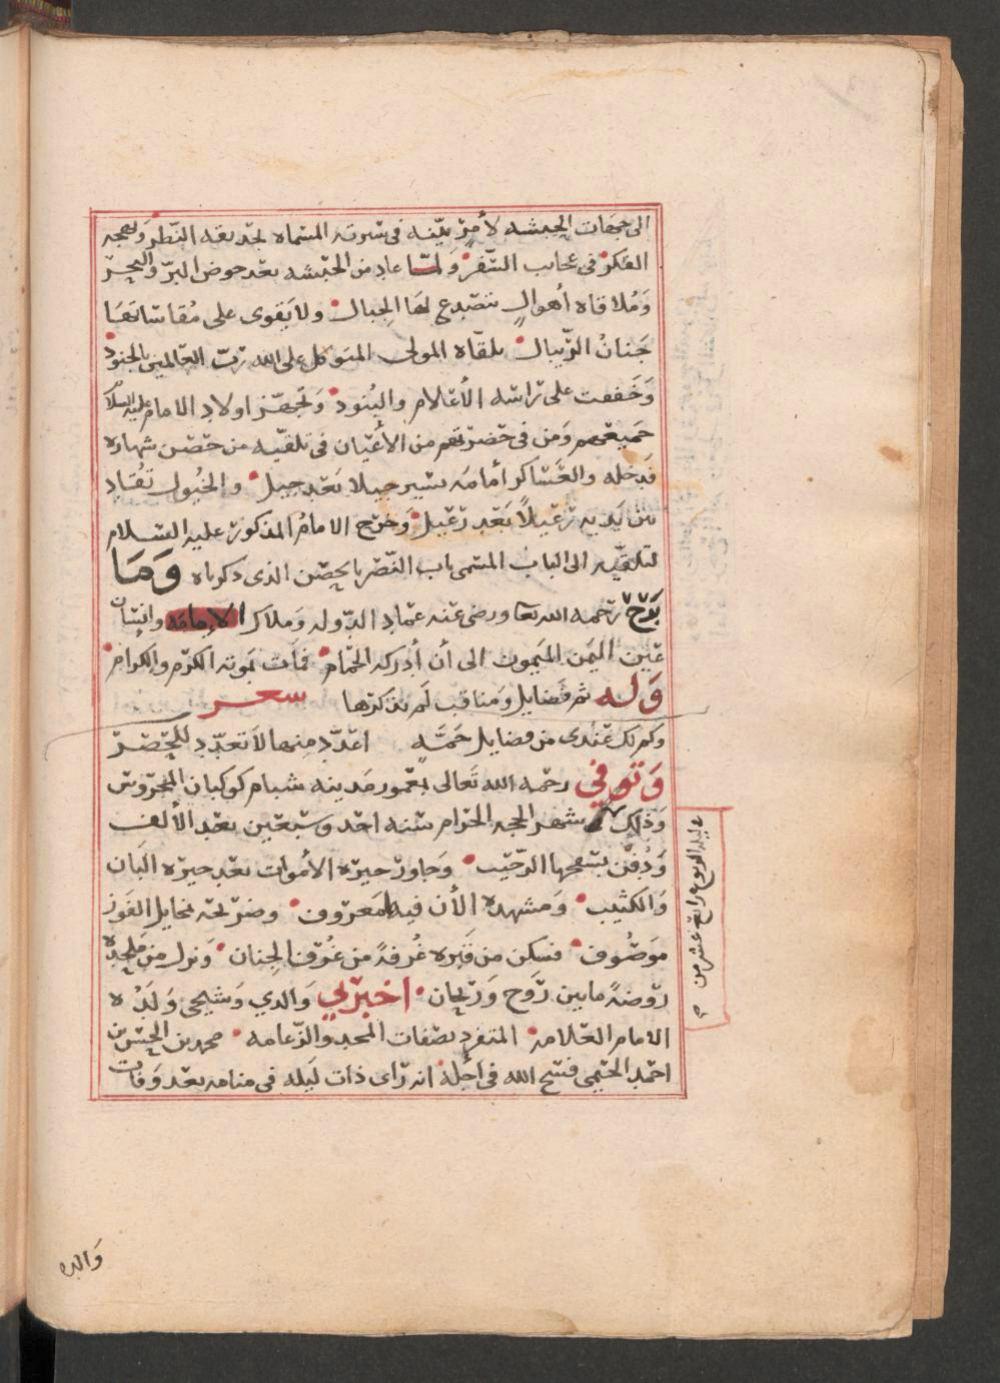 الى جهات الحبشه لأمرٍ بيّنه فى سيرته المسماه بحديقه النظر وبهجه
الفكر فى عجائب السَّفر ولمّا عاد من الحبشه بعد خوض البرّ والبحر
وَمُلاقاه أهوالٍ تتصدع لها الجبال ولا يَقوى على مُقاساتها
جَنانُ الرّيبال تلقّاه المولى المتوكل على الله ربّ العالمين بالجنود
وَخفقت على رأسه الأعلام والبُنود وتجهّز اولاد الامام عليه السلام
جميعهم وَمن فى حضرتهم من الأعيان فى تلقّيه من حصن شهاره
فدخله والعساكر أمامه تسير جيلا بَعد جيل والخيول تُقاد
بين يَديه رعيلاً بَعد رعيل وَخرج الامامُ المذكور عليه السلام
لتلقّيه الى الباب المسمى باب النّصر بالحصن الذى ذكرناه وَمَا
بَرح رَحمه الله تعا ورضى عنه عماد الدّوله وَملاك الإمامة وانسان
عَين اليَمن المَيمون الى أن أدركه الحمام فمات بموته الكرَم والكرام
وَله ثم فضايل وَمناقب لَم نذكرها شعر
وكم لك عندى من فضايل جَمَّه اعدّد منها لا تعدّد للحصر
وَتوفي رحمه الله تَعالى بمعمور مَدينه شبام كوكبان المحروس
وَذلك شهر الحجه الحَرام سنه احد وسَبعين بعد الألف
وَدُفن بسفحها الرّحيب وَجاور حيره الأموات بعد حيره البَان
وَالكثيب وَمشهده الأن فيها معروف وضريحه بمخايل الفَوز
موَصُوف فسكن من قَبره غُرفةً من غُرَف الجنان وَنزل من ملحده
رَوضةً مابين رَوح وَريحان اخبرني وَالدي وَشيخى وَلَدُه
الامام العلامه المتفرد بصفات المجد والزّعامه محمد بن الحسن بن
احمد الحيمى فسح الله فى اجله انه رأى ذات لَيله فى منامه بعد وَفات
فى ليله الربوع رابع عشر من
وَالده